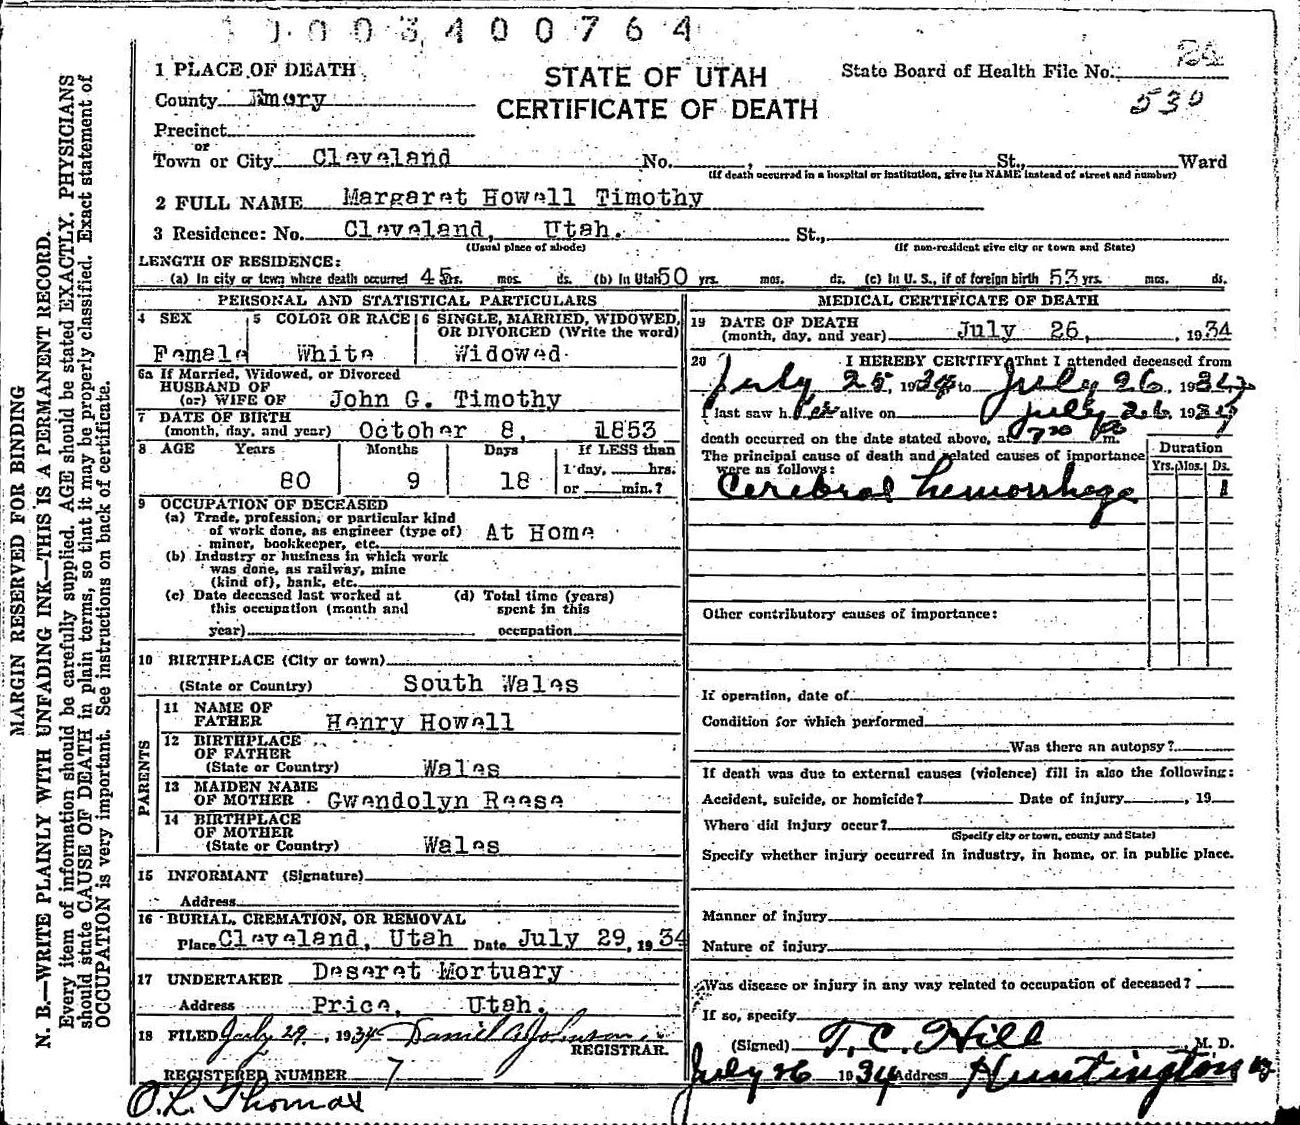 1003400764
1 PLACE OF DEATH
STATE OF UTAH
State Board of Health File No.
County Emery
CERTIFICATE OF DEATH
530
Precinct
or
Town or City Cleveland No. , St., Ward
(If death occurred in a hospital or institution, give its NAME instead of street and number)
2 FULL NAME Margaret Howell Timothy
3 Residence: No. Cleveland, Utah. St.,
(Usual place of abode) (If non-resident give city or town and State)
LENGTH OF RESIDENCE:
(a) In city or town where death occurred 45 yrs. mos. ds. (b) In Utah 50 yrs. mos. ds. (c) In U. S., if of foreign birth 53 yrs. mos. ds.
PERSONAL AND STATISTICAL PARTICULARS
4 SEX
Female
5 COLOR OR RACE
White
6 SINGLE, MARRIED, WIDOWED,
OR DIVORCED (Write the word)
Widowed
6a If Married, Widowed, or Divorced
HUSBAND OF
(or) WIFE OF John G. Timothy
7 DATE OF BIRTH
(month, day, and year) October 8, 1853
8 AGE Years Months Days If LESS than
80 9 18 1 day, hrs.
or min.?
9 OCCUPATION OF DECEASED
(a) Trade, profession, or particular kind
of work done, as engineer (type of)
miner, bookkeeper, etc. At Home
(b) Industry or business in which work
was done, as railway, mine
(kind of), bank, etc.
(c) Date deceased last worked at
this occupation (month and
year)
(d) Total time (years)
spent in this
occupation
10 BIRTHPLACE (City or town)
(State or Country) South Wales
PARENTS
11 NAME OF
FATHER Henry Howell
12 BIRTHPLACE
OF FATHER
(State or Country) Wales
13 MAIDEN NAME
OF MOTHER Gwendolyn Reese
14 BIRTHPLACE
OF MOTHER
(State or Country) Wales
15 INFORMANT (Signature)
Address
16 BURIAL, CREMATION, OR REMOVAL
Place Cleveland, Utah Date July 29, 1934
17 UNDERTAKER Deseret Mortuary
Address Price, Utah.
18 FILED July 29, 1934 Daniel A Johnson
REGISTRAR.
REGISTERED NUMBER 7
O. L. Thomas
MEDICAL CERTIFICATE OF DEATH
19 DATE OF DEATH
(month, day, and year) July 26, , 1934
20 I HEREBY CERTIFY, That I attended deceased from
July 25, 1934 to July 26, 1934
I last saw her alive on July 26, 1934
death occurred on the date stated above, at 7 30 m.
The principal cause of death and related causes of importance
were as follows:
Duration
Yrs. Mos. Ds.
Cerebral hemorrhage 1
Other contributory causes of importance:
If operation, date of
Condition for which performed
Was there an autopsy?
If death was due to external causes (violence) fill in also the following:
Accident, suicide, or homicide? Date of injury , 19
Where did injury occur?
(Specify city or town, county and State)
Specify whether injury occurred in industry, in home, or in public place.
Manner of injury
Nature of injury
Was disease or injury in any way related to occupation of deceased?
If so, specify
(Signed) T. C. Hill , M. D.
July 26 1934 Address Huntington
MARGIN RESERVED FOR BINDING
N. B.—WRITE PLAINLY WITH UNFADING INK—THIS IS A PERMANENT RECORD.
Every item of information should be carefully supplied. AGE should be stated EXACTLY. PHYSICIANS
should state CAUSE OF DEATH in plain terms, so that it may be properly classified. Exact statement of
OCCUPATION is very important. See instructions on back of certificate.